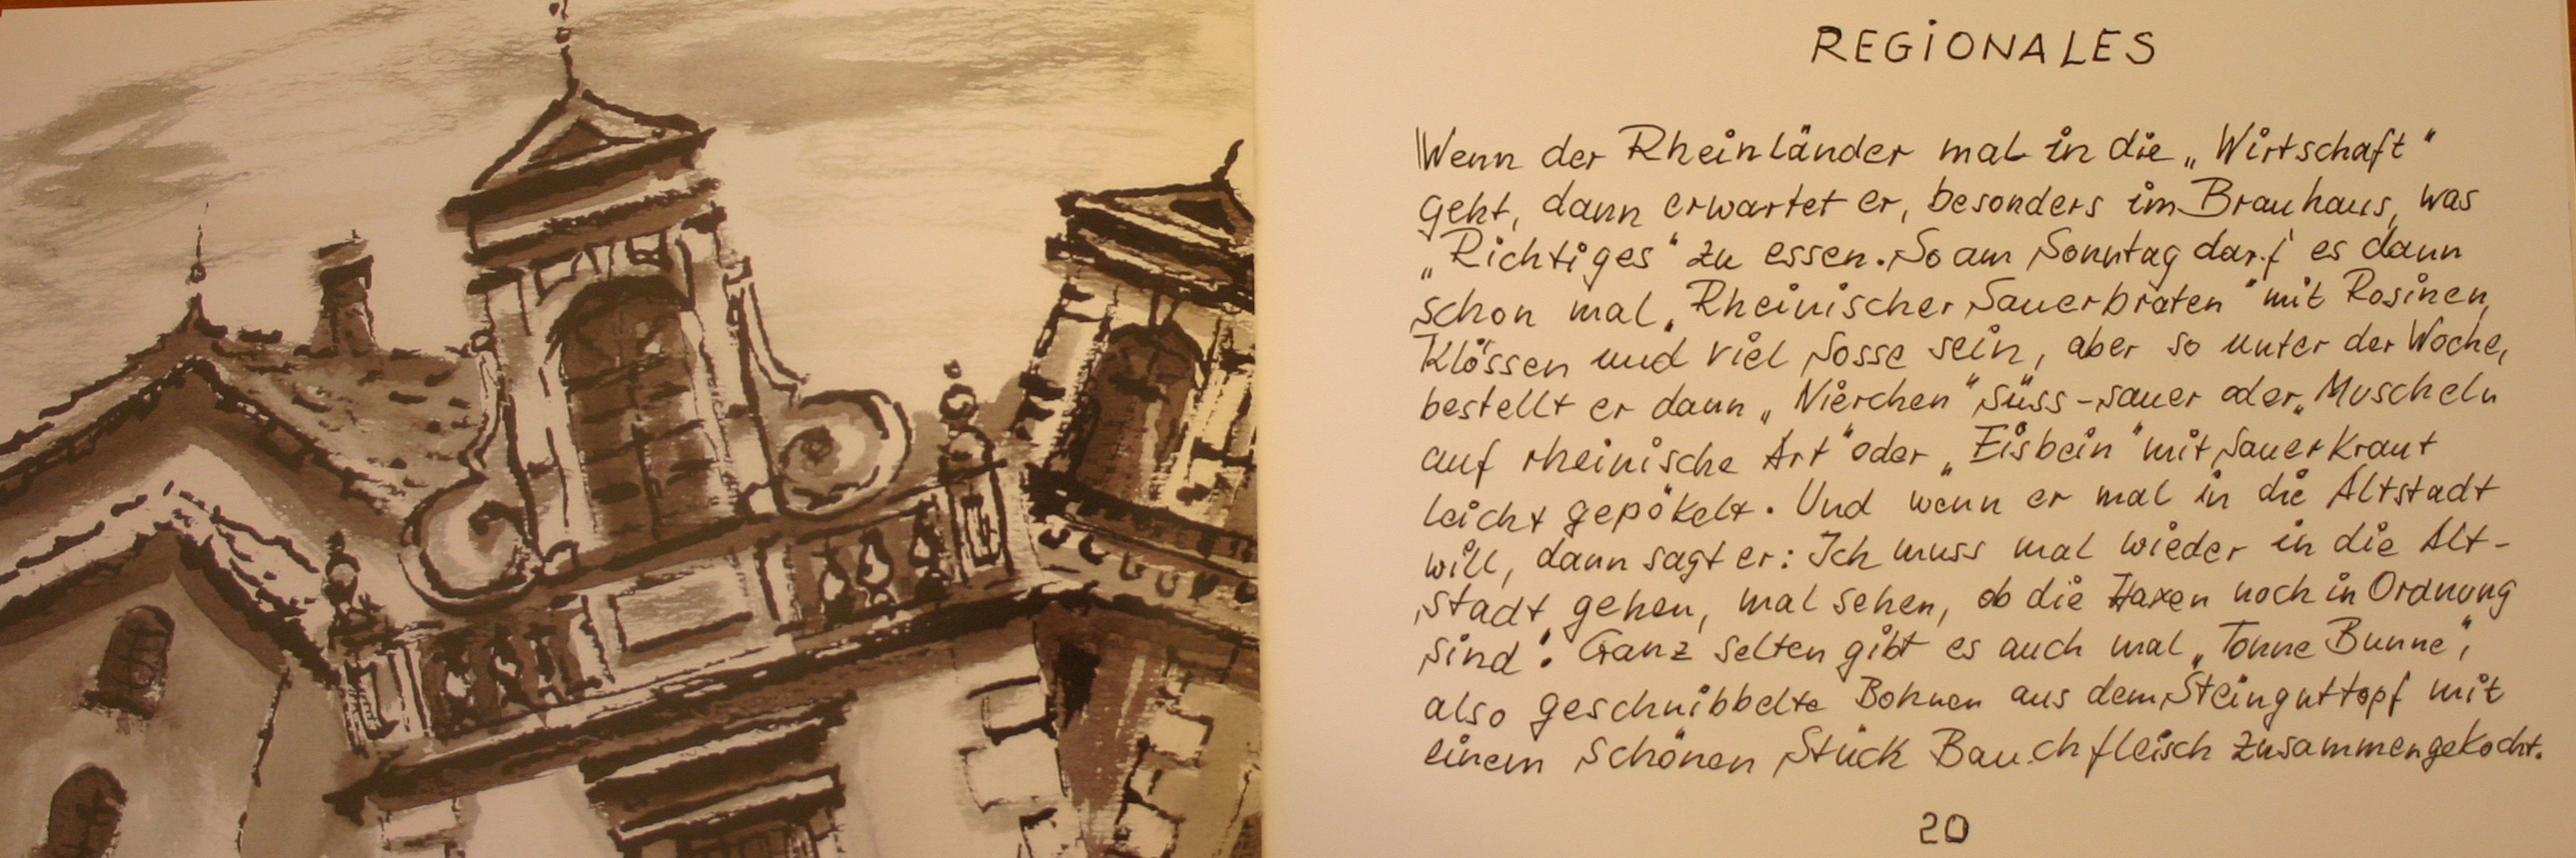 REGIONALES
Wenn der Rheinländer mal in die „Wirtschaft“
geht, dann erwartet er, besonders im Brauhaus, was
„Richtiges“ zu essen. So am Sonntag darf es dann
schon mal „Rheinischer Sauerbraten“ mit Rosinen,
Klössen und viel Sosse sein, aber so unter der Woche,
bestellt er dann „Nierchen“ süss-sauer oder „Muscheln
auf rheinische Art“ oder „Eisbein“ mit Sauerkraut
leicht gepökelt. Und wenn er mal in die Altstadt
will, dann sagt er: Ich muss mal wieder in die Alt-
stadt gehen, mal sehen, ob die Haxen noch in Ordnung
sind“. Ganz selten gibt es auch mal „Tonne Bunne“,
also geschnibbelte Bohnen aus dem Steinguttopf mit
einem schönen Stück Bauchfleisch zusammengekocht.
20